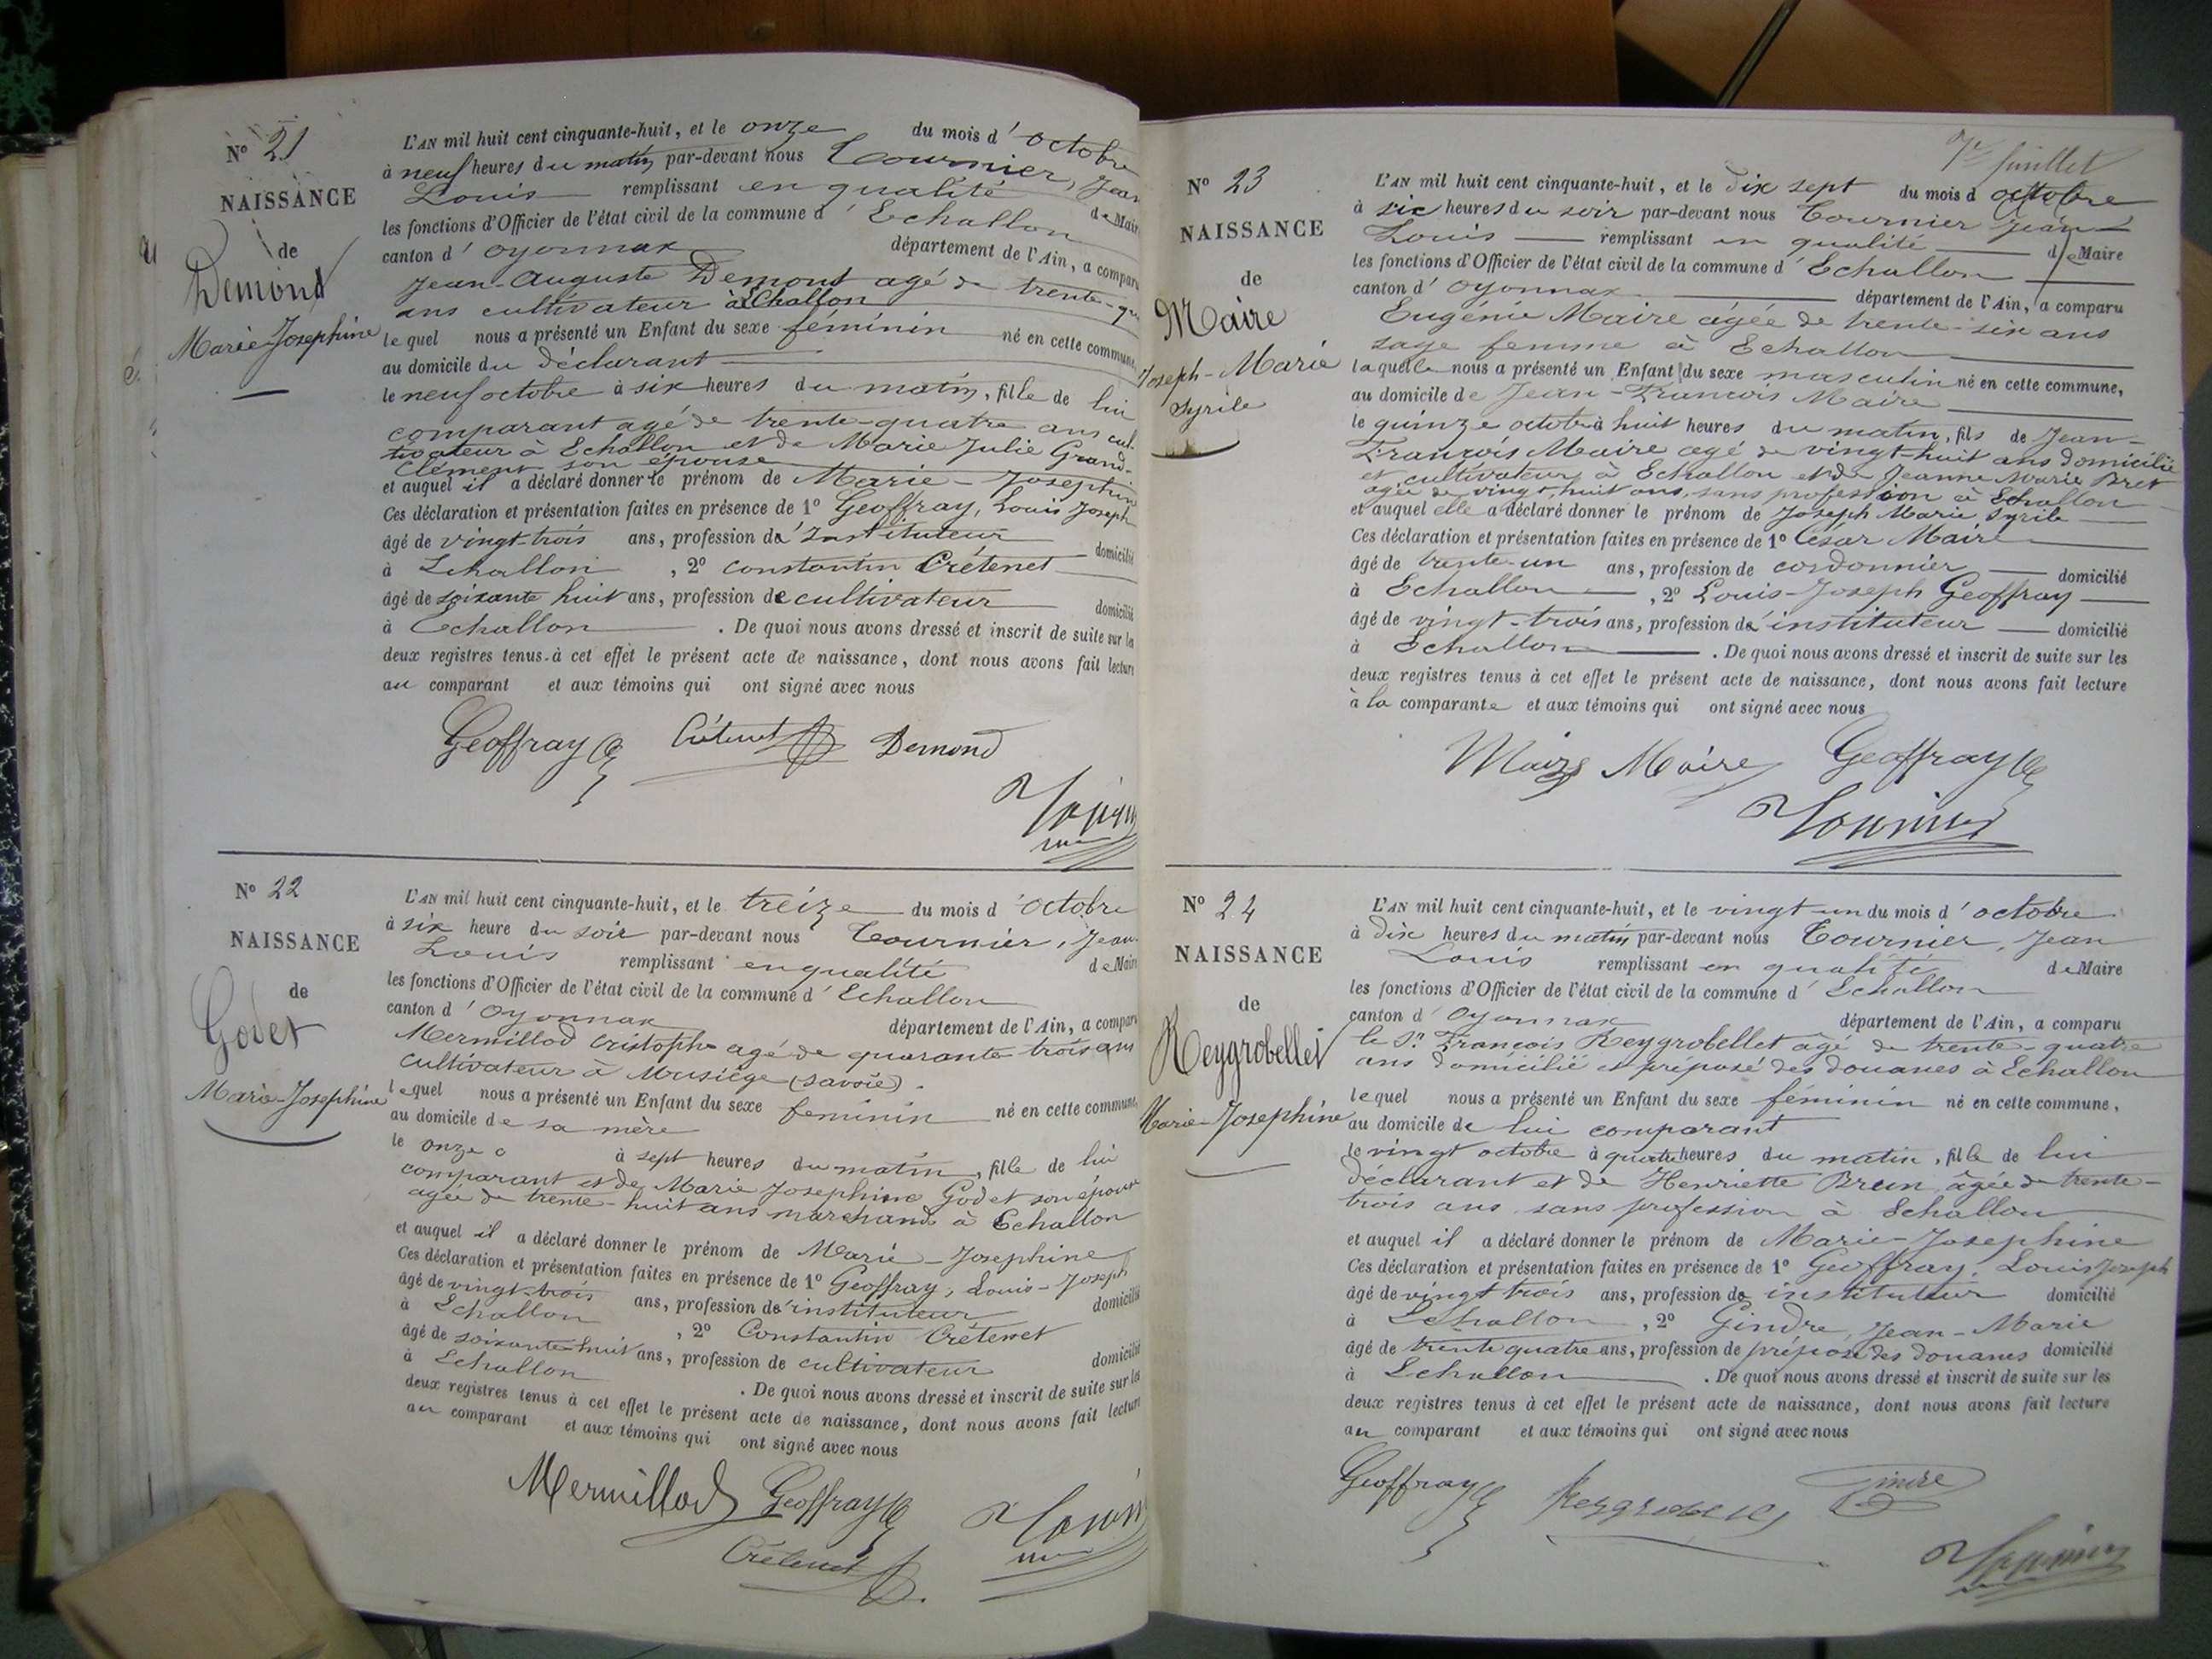 N° 21
NAISSANCE
de
Demond
Marie Josephine
L'AN mil huit cent cinquante-huit, et le onze du mois d'octobre
à neuf heures du matin par-devant nous Tournier, Jean
Louis remplissant en qualité de Maire
les fonctions d'Officier de l'état civil de la commune d'Echallon
canton d'oyonnax département de l'Ain, a comparu
Jean-Auguste Demont agé de trente-
ans cultivateur à Echallon
lequel nous a présenté un Enfant du sexe féminin né en cette commune,
au domicile du déclarant
le neuf octobre à six heures du matin, fille de lui
comparant agé de trente-quatre ans cul-
tivateur à Echallon et de Marie Julie Grand-
Clément son épouse
et auquel il a déclaré donner le prénom de Marie-Josephine
Ces déclaration et présentation faites en présence de 1° Geoffray, Louis Joseph
âgé de vingt-trois ans, profession d'instituteur domicilié
à Echallon, 2° constantin Crétenet
âgé de soixante huit ans, profession de cultivateur domicilié
à Echallon. De quoi nous avons dressé et inscrit de suite sur les
deux registres tenus à cet effet le présent acte de naissance, dont nous avons fait lecture
au comparant et aux témoins qui ont signé avec nous
Geoffray Crétenet Demond
Tournier
N° 22
NAISSANCE
de
Godet
Marie-Josephine
L'AN mil huit cent cinquante-huit, et le treize du mois d'octobre
à six heure du soir par-devant nous Tournier, Jean
Louis remplissant en qualité de Maire
les fonctions d'Officier de l'état civil de la commune d'Echallon
canton d'Oyonnax département de l'Ain, a comparu
Mermillod Cristophe agé de quarante-trois ans
cultivateur à Musiège (Savoie).
lequel nous a présenté un Enfant du sexe feminin né en cette commune,
au domicile de sa mère
le onze o à sept heures du matin, fille de lui
comparant et de Marie Josephine Godet son épouse
agée de trente-huit ans marchande à Echallon
et auquel il a déclaré donner le prénom de Marie-Josephine
Ces déclaration et présentation faites en présence de 1° Geoffray, Louis-Joseph
âgé de vingt-trois ans, profession d'instituteur domicilié
à Echallon, 2° Constantin Crétenet
âgé de soixante-huit ans, profession de cultivateur domicilié
à Echallon. De quoi nous avons dressé et inscrit de suite sur les
deux registres tenus à cet effet le présent acte de naissance, dont nous avons fait lecture
au comparant et aux témoins qui ont signé avec nous
Mermillod Geoffray Tournier
Crétenet
juillet
N° 23
NAISSANCE
de
Maire
Joseph-Marie
Syrile
L'AN mil huit cent cinquante-huit, et le dix sept du mois d octobre
à six heures du soir par-devant nous Tournier Jean-
Louis remplissant en qualité de Maire
les fonctions d'Officier de l'état civil de la commune d'Echallon
canton d'oyonnax département de l'Ain, a comparu
Eugénie Maire agée de trente-six ans
sage femme à Echallon
laquelle nous a présenté un Enfant du sexe masculin né en cette commune,
au domicile de Jean-François Maire
le quinze octobre à huit heures du matin, fils de Jean-
François Maire agé de vingt-huit ans domicilié
et cultivateur à Echallon et de Jeanne Marie Bret
agée de vingt huit ans, sans profession à Echallon
et auquel elle a déclaré donner le prénom de Joseph Marie Syrile
Ces déclaration et présentation faites en présence de 1° César Maire
âgé de trente-un ans, profession de cordonnier domicilié
à Echallon, 2° Louis-Joseph Geoffray
âgé de vingt-trois ans, profession d'instituteur domicilié
à Echallon. De quoi nous avons dressé et inscrit de suite sur les
deux registres tenus à cet effet le présent acte de naissance, dont nous avons fait lecture
à la comparante et aux témoins qui ont signé avec nous
Maire Maire Geoffray
Tournier
N° 24
NAISSANCE
de
Reygrobellet
Marie-Josephine
L'AN mil huit cent cinquante-huit, et le vingt-un du mois d'octobre
à dix heures du matin par-devant nous Tournier, Jean
Louis remplissant en qualité de Maire
les fonctions d'Officier de l'état civil de la commune d'Echallon
canton d'Oyonnax département de l'Ain, a comparu
le Sr François Reygrobellet agé de trente-quatre
ans domicilié et préposé des douanes à Echallon
lequel nous a présenté un Enfant du sexe féminin né en cette commune,
au domicile de lui comparant
le vingt octobre à quatre heures du matin, fille de lui
déclarant et de Henriette Brun, âgée de trente-
trois ans sans profession à Echallon
et auquel il a déclaré donner le prénom de Marie-Josephine
Ces déclaration et présentation faites en présence de 1° Geoffray, Louis Joseph
âgé de vingt trois ans, profession de instituteur domicilié
à Echallon, 2° Gindre, Jean-Marie
âgé de trente quatre ans, profession de préposé des douanes domicilié
à Echallon. De quoi nous avons dressé et inscrit de suite sur les
deux registres tenus à cet effet le présent acte de naissance, dont nous avons fait lecture
au comparant et aux témoins qui ont signé avec nous
Geoffray Reygrobellet Gindre
Tournier